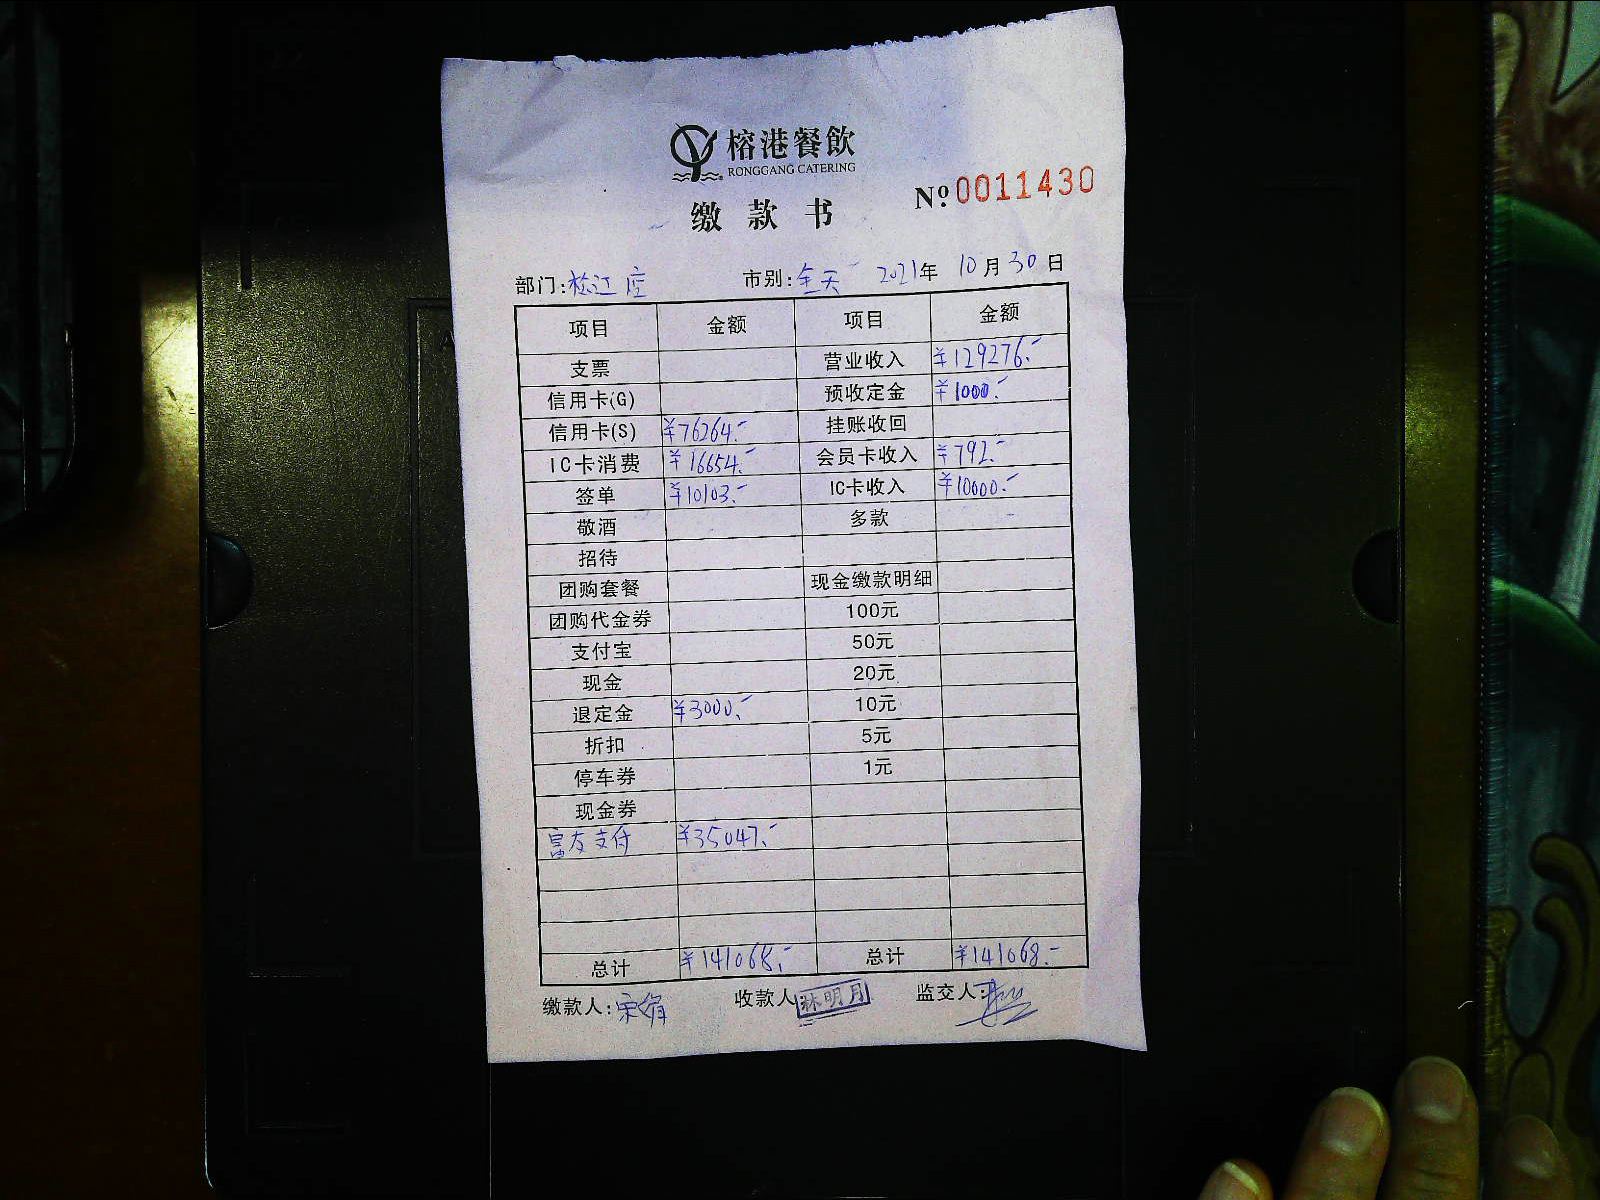 榕港餐飲
RONGGANG CATERING
№ 0011430
缴款书
部门:松江店 市别:全天 2021年 10月30日
项目 金额 项目 金额
支票 营业收入 ¥129276.-
信用卡(G) 预收定金 ¥1000.-
信用卡(S) ¥76264.- 挂账收回
IC卡消费 ¥16654.- 会员卡收入 ¥792.-
签单 ¥10103.- IC卡收入 ¥10000.-
敬酒 多款
招待
团购套餐 现金缴款明细
团购代金券 100元
支付宝 50元
现金 20元
退定金 ¥3000.- 10元
折扣 5元
停车券 1元
现金券
富友支付 ¥35047.-
总计 ¥141068.- 总计 ¥141068.-
缴款人:宋娟 收款人:林明月 监交人: